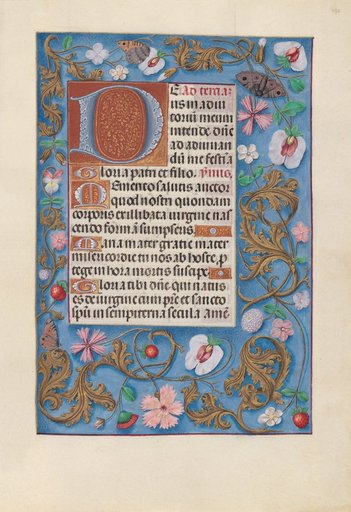 Ad tertiaz
Deus in adiu
toriū meum
intende dn̄e
ad adiuuan
dū me festīa
Gloria patri et filio. ymnus.
Memento salutis auctor
quod nostri quondam
corporis ex illibata uirgine nas
cendo formā sumpseris
Maria mater gratie mater
misericordie tu nos ab hoste, p
tege in hora mortis suscipe
Gloria tibi dn̄e qui natus
es de uirgine cum pr̄e et sancto
spū in sempiterna secula amē